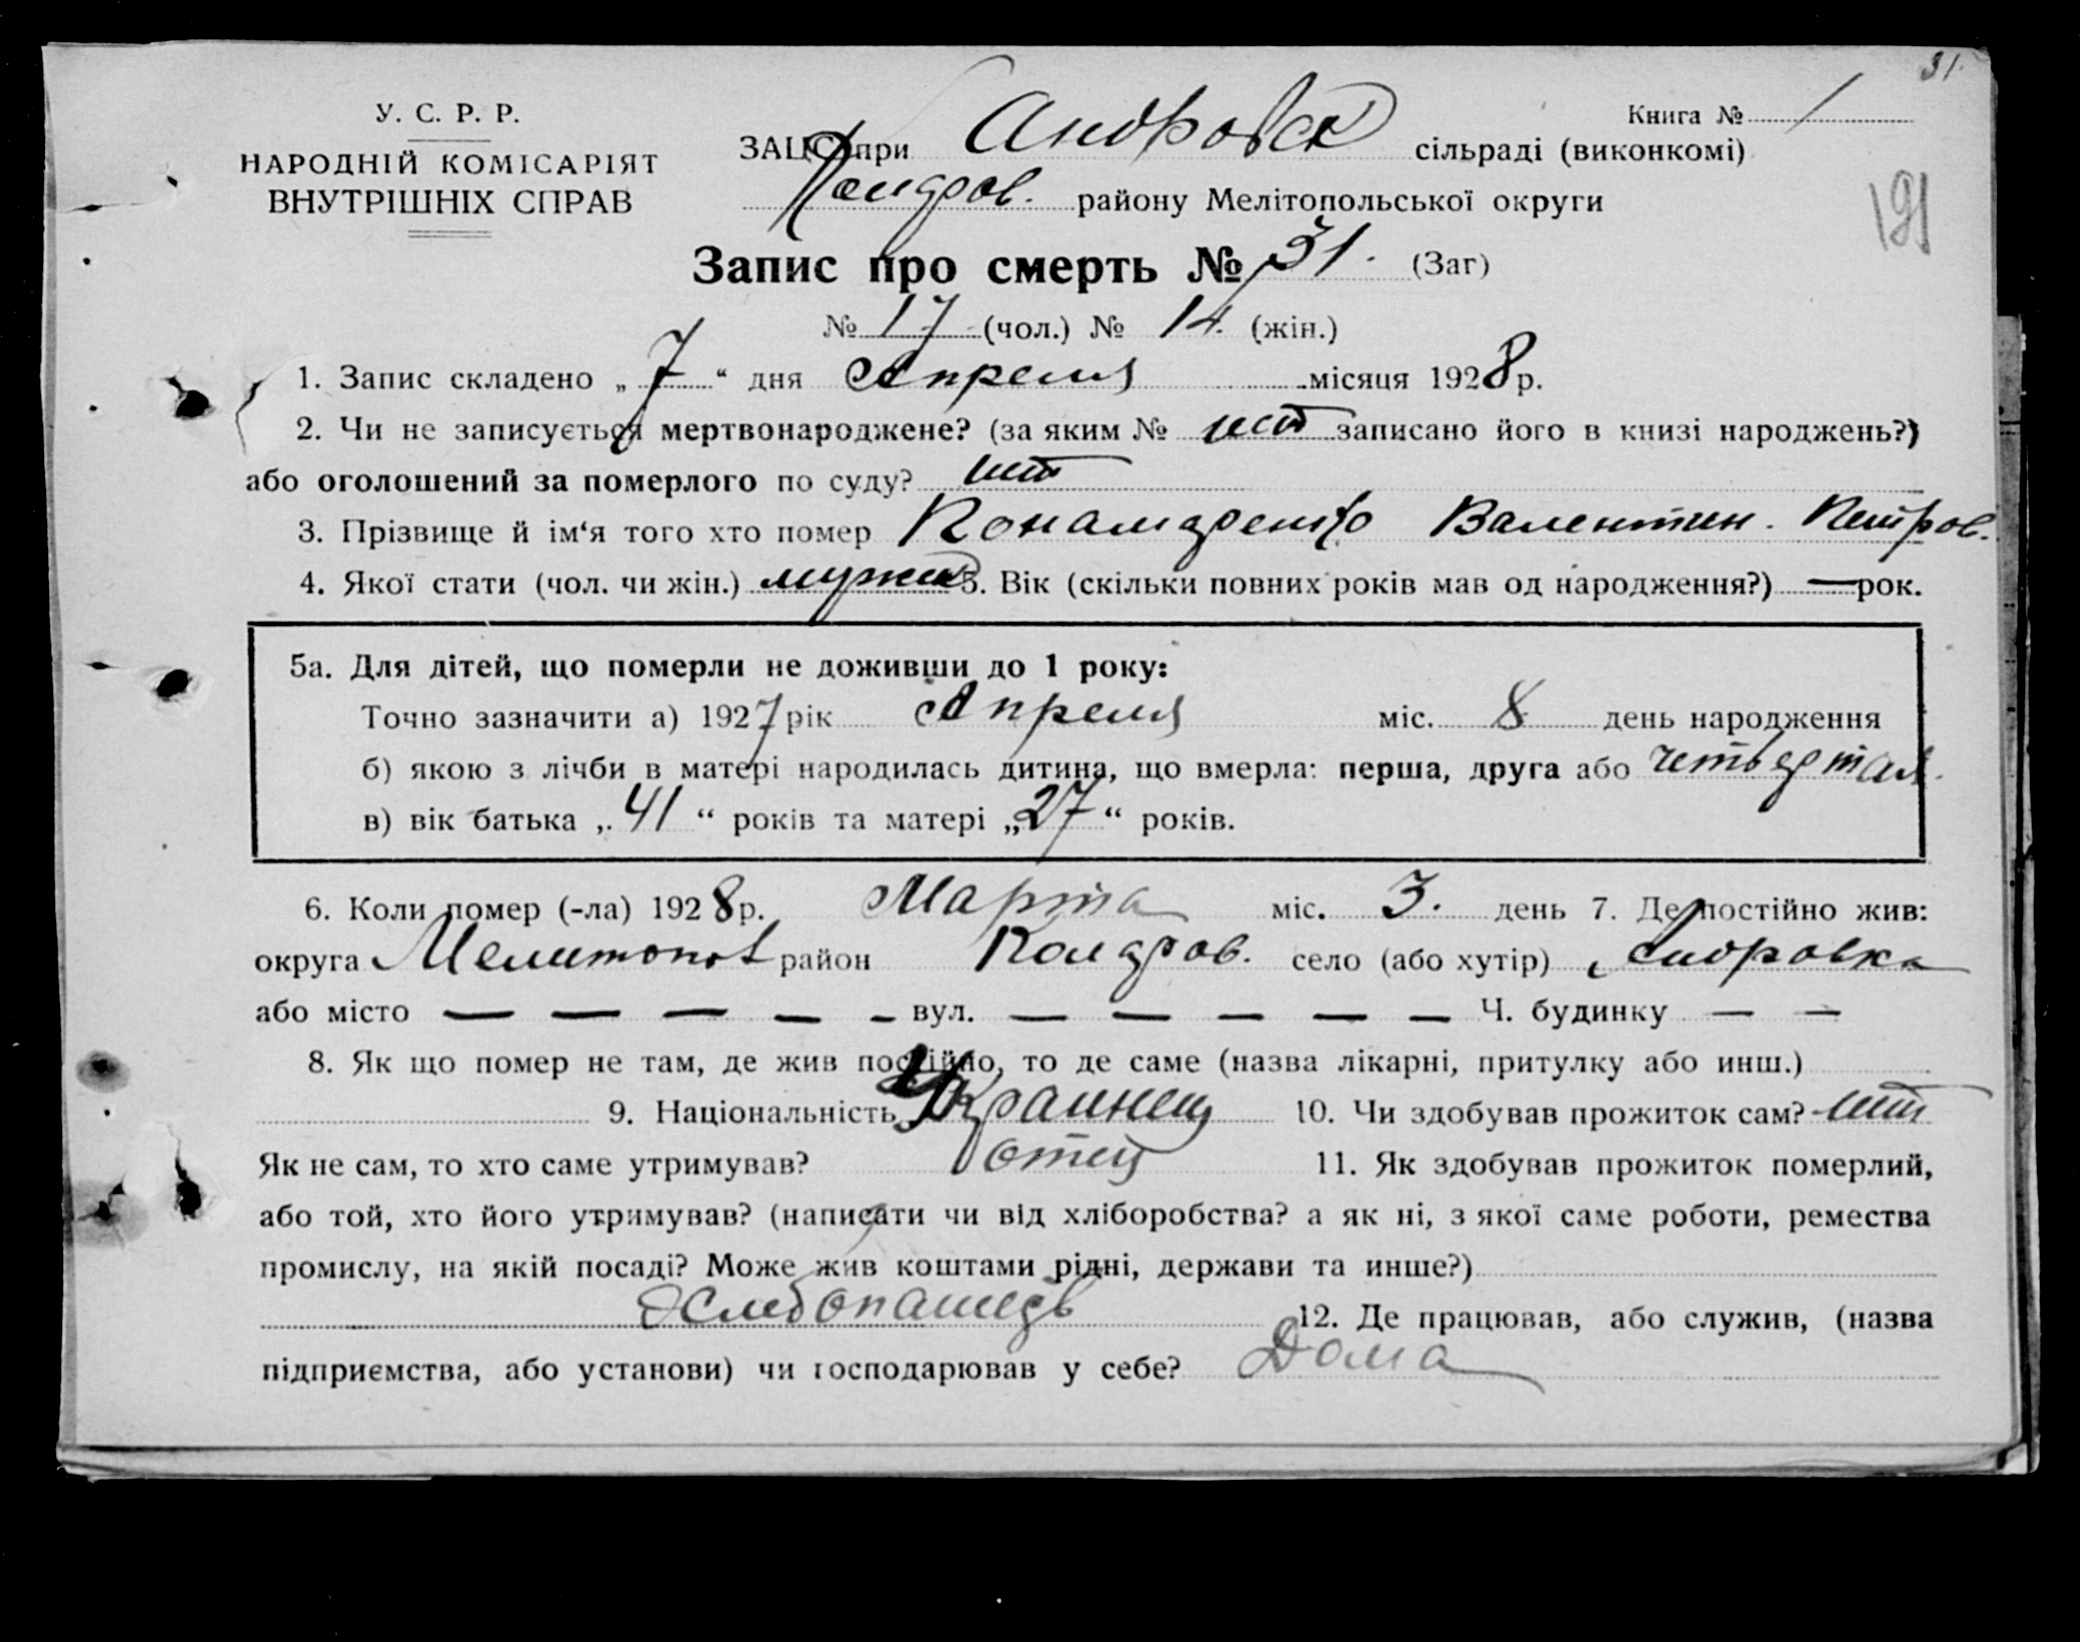 31.
У. С. Р. Р.
НАРОДНІЙ КОМІСАРІЯТ
ВНУТРІШНІХ СПРАВ
Книга № 1
ЗАЦС при Андровск сільраді (виконкомі)
району Мелітопольської округи
191
Запис про смерть № 31. (Заг)
№ 17 (чол.) № 14. (жін.)
1. Запис складено „ 7 “ дня Апреля місяця 1928 р.
2. Чи не записується мертвонароджене? (за яким № нет записано його в книзі народжень?)
або оголошений за померлого по суду? нет
3. Прізвище й ім‘я того хто помер Валентин. Петров.
4. Якої стати (чол. чи жін.) мужск 5. Вік (скільки повних років мав од народження?) — рок.
5а. Для дітей, що померли не доживши до 1 року:
Точно зазначити а) 1927 рік Апреля міс. 8 день народження
б) якою з лічби в матері народилась дитина, що вмерла: перша, друга або четвертая.
в) вік батька „ 41 “ років та матері „ 27 “ років.
6. Коли помер (-ла) 1928 р. Марта міс. 3. день 7. Де постійно жив:
округа Мелитопол район село (або хутір) Андровка
або місто — — — — — вул. — — — — — Ч. будинку — —
8. Як що помер не там, де жив постійно, то де саме (назва лікарні, притулку або инш.)
9. Національність Украинец 10. Чи здобував прожиток сам? нет
Як не сам, то хто саме утримував? отец 11. Як здобував прожиток померлий,
або той, хто його утримував? (написати чи від хліборобства? а як ні, з якої саме роботи, ремества
промислу, на якій посаді? Може жив коштами рідні, держави та инше?)
Хлебопашедь 12. Де працював, або служив, (назва
підприємства, або установи) чи господарював у себе? Дома